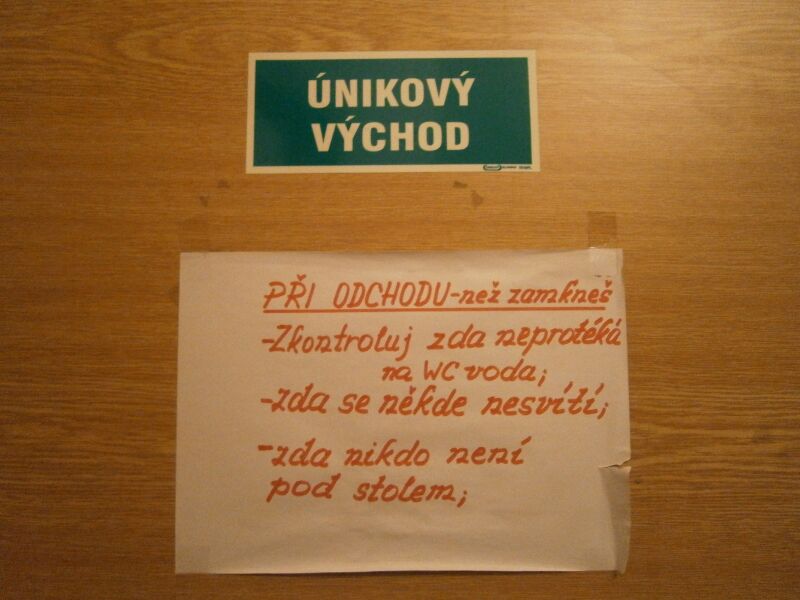 ÚNIKOVÝ
VÝCHOD
PŘI ODCHODU-než zamkneš
-Zkontroluj zda neprotéká
na WC voda;
-zda se někde nesvítí;
-zda nikdo není
pod stolem;